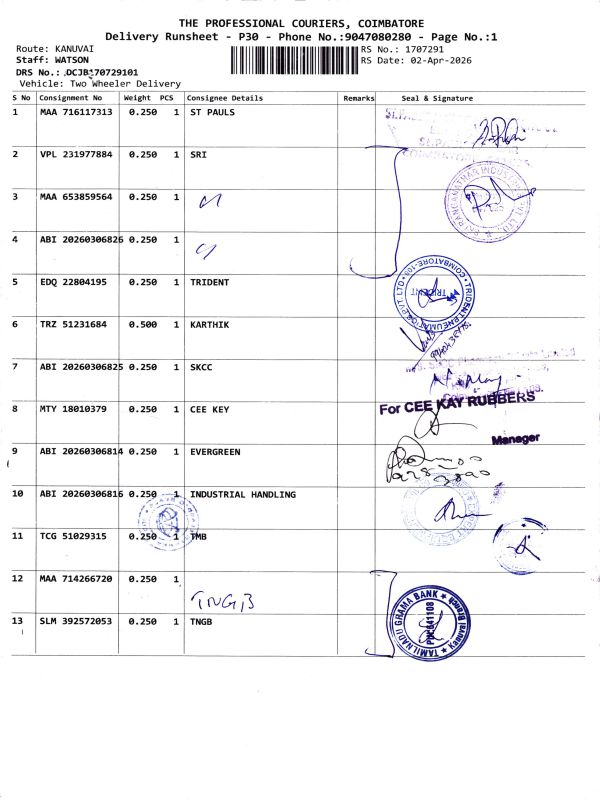 THE PROFESSIONAL COURIERS, COIMBATORE
Delivery Runsheet - P30 - Phone No.:9047080280 - Page No.:1
Route: KANUVAI
RS No.: 1707291
Staff: WATSON
RS Date: 02-Apr-2026
DRS No.: DCJB170729101
Vehicle: Two Wheeler Delivery
S No Consignment No Weight PCS Consignee Details Remarks Seal & Signature
1 MAA 716117313 0.250 1 ST PAULS
2 VPL 231977884 0.250 1 SRI
3 MAA 653859564 0.250 1
4 ABI 20260306826 0.250 1
5 EDQ 22804195 0.250 1 TRIDENT
6 TRZ 51231684 0.500 1 KARTHIK
7 ABI 20260306825 0.250 1 SKCC
8 MTY 18010379 0.250 1 CEE KEY
For CEE KAY RUBBERS
Manager
9 ABI 20260306814 0.250 1 EVERGREEN
10 ABI 20260306816 0.250 1 INDUSTRIAL HANDLING
11 TCG 51029315 0.250 1 TMB
12 MAA 714266720 0.250 1
TNGB
13 SLM 392572053 0.250 1 TNGB
TAMILNADU GRAMA BANK
PIN:641108